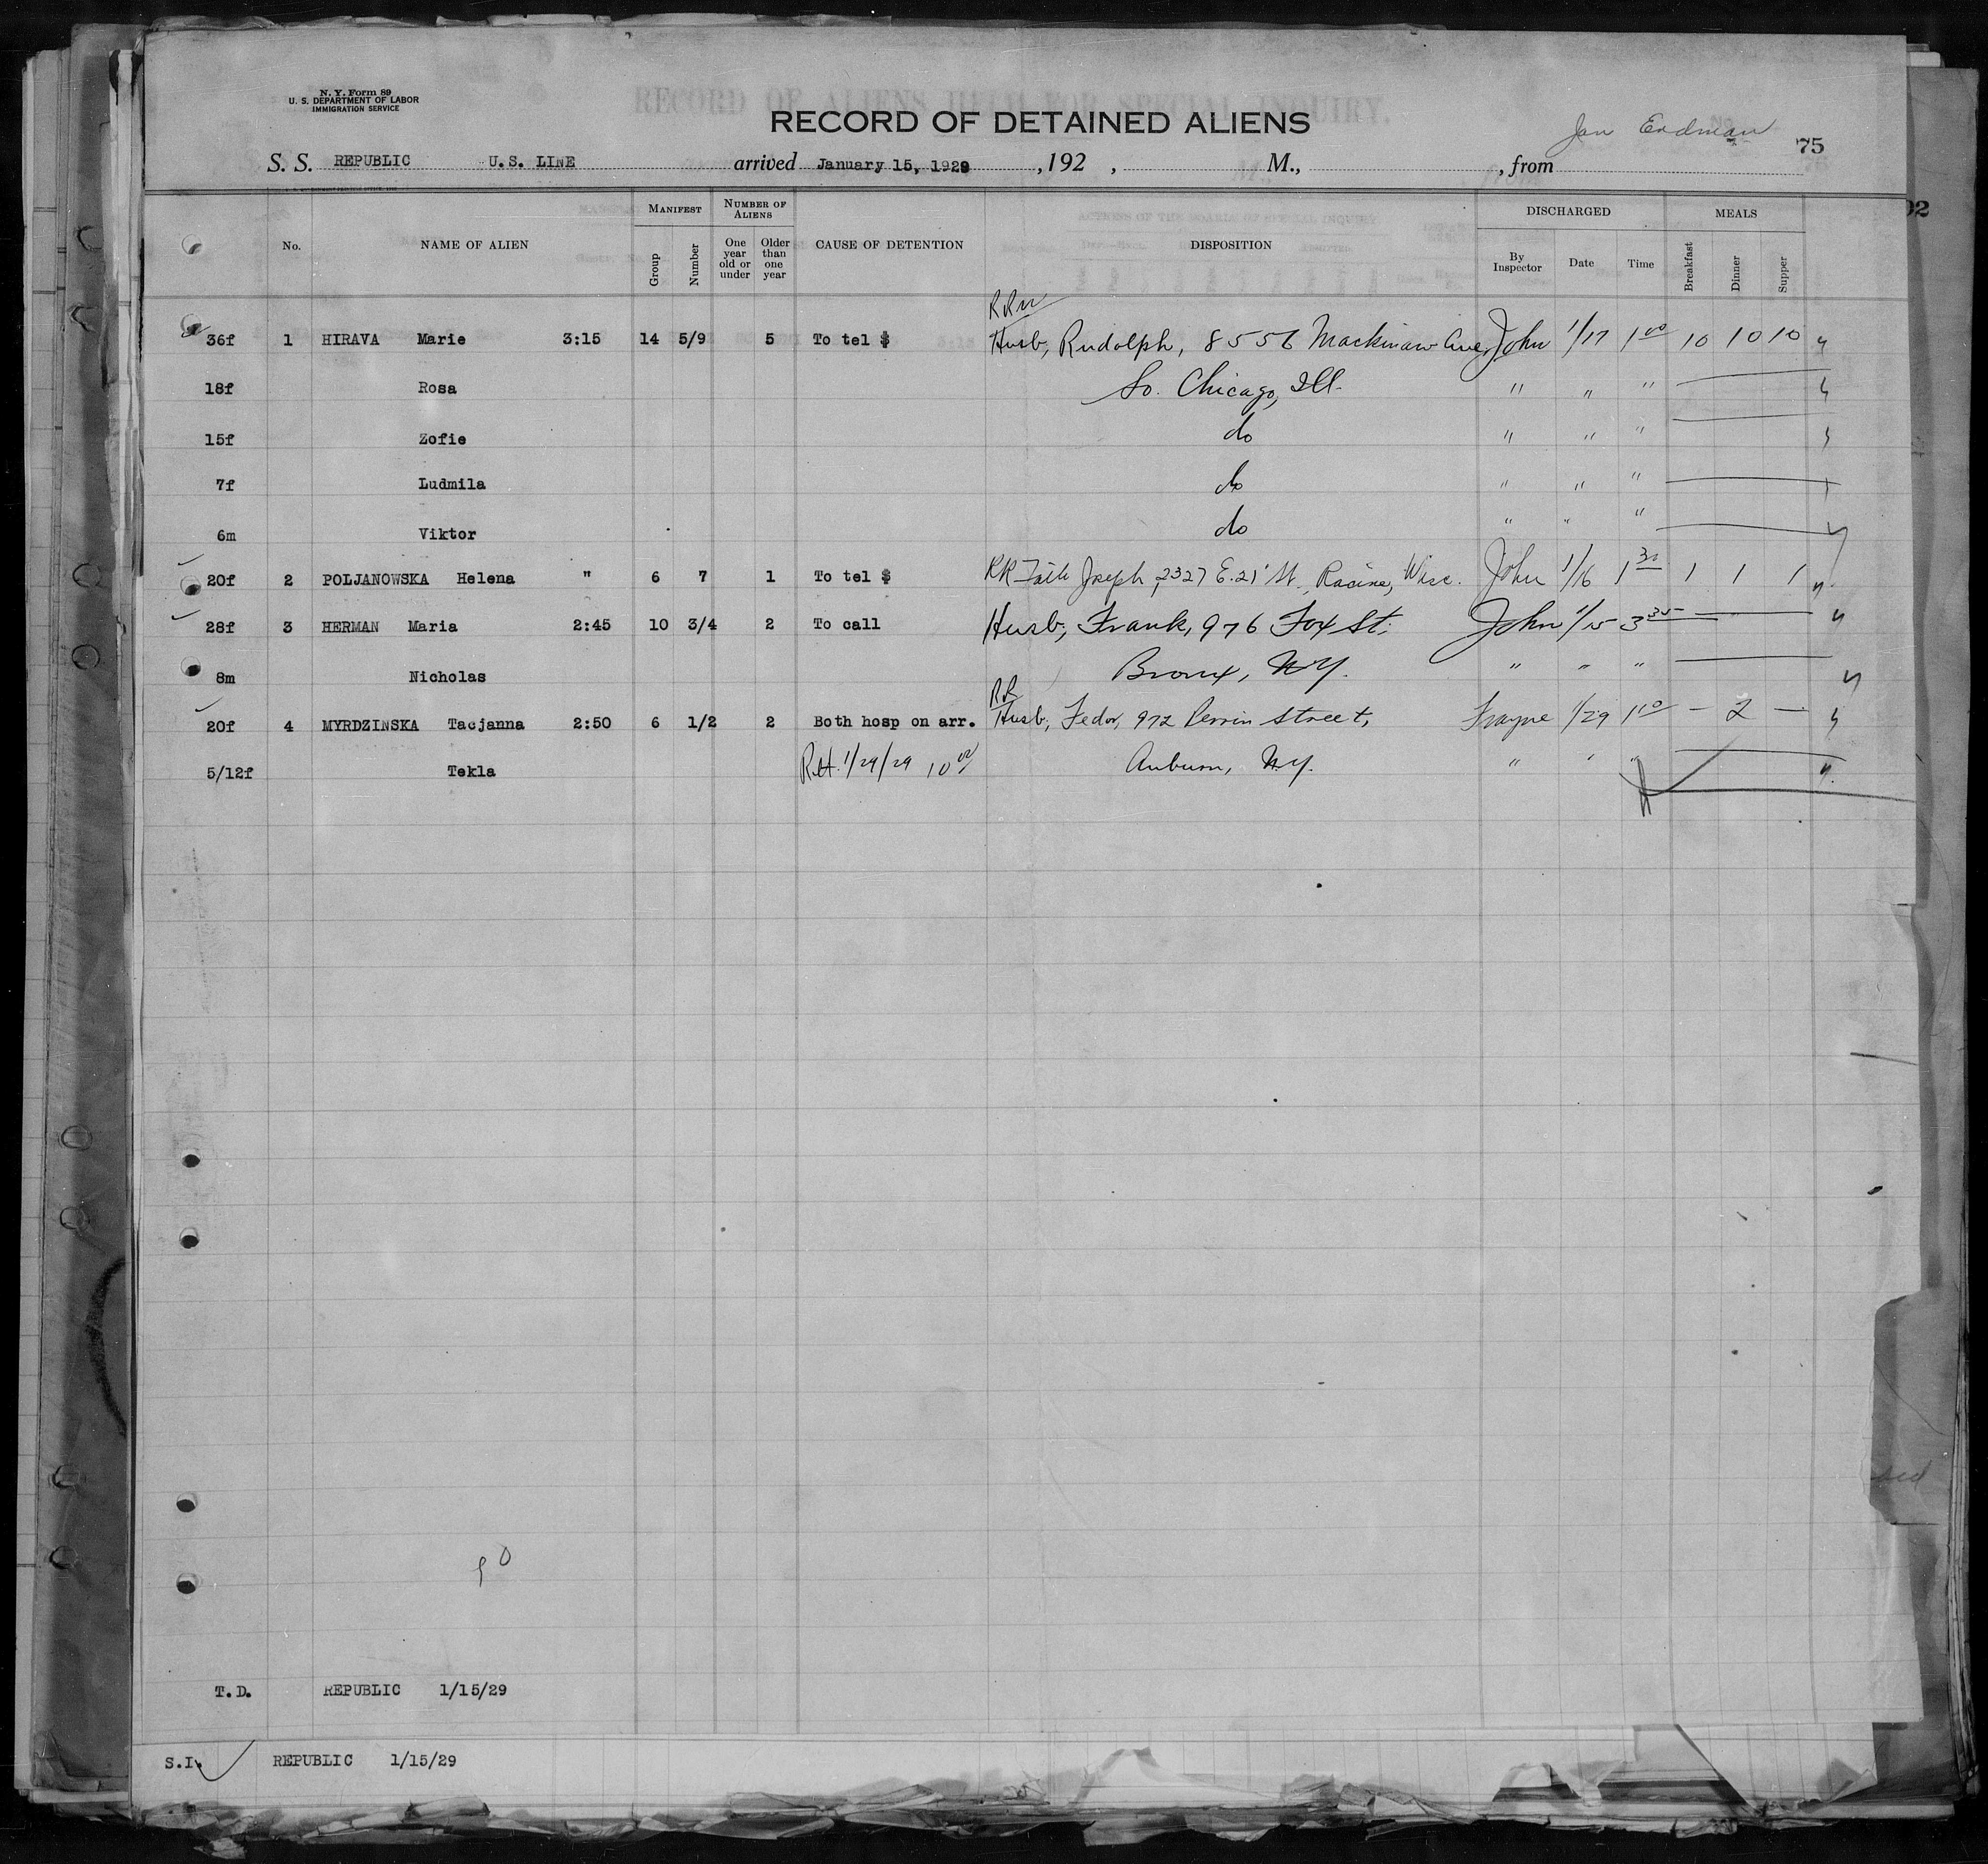 N. Y. Form 89
U. S. DEPARTMENT OF LABOR
IMMIGRATION SERVICE
RECORD OF ALIENS HELD FOR SPECIAL INQUIRY.
RECORD OF DETAINED ALIENS
Jan Erdman 75
S. S. REPUBLIC U.S. LINE arrived January 15, 1929, 192 , M., , from
92
No. NAME OF ALIEN MANIFEST Group Number NUMBER OF ALIENS One year old or under Older than one year CAUSE OF DETENTION DISPOSITION DISCHARGED By Inspector Date Time MEALS Breakfast Dinner Supper
36f 1 HIRAVA Marie 3:15 14 5/9 5 To tel $ Husb, Rudolph, 8556 Mackinaw Ave, John 1/17 1 00 10 10 10
18f Rosa So. Chicago, Ill. " " "
15f Zofie do " " "
7f Ludmila do " " "
6m Viktor do " " "
20f 2 POLJANOWSKA Helena " 6 7 1 To tel $ RR Joseph, 2327 E. 21 St., Racine, Wisc. John 1/16 1 30 1 1 1
28f 3 HERMAN Maria 2:45 10 3/4 2 To call Husb, Frank, 976 Fox St. John 1/15 3 35
8m Nicholas Bronx, NY. " " "
RR
20f 4 MYRDZINSKA Tacjanna 2:50 6 1/2 2 Both hosp on arr. Husb, Fedor, 972 Perrin Street, Frayne 1/29 1 10 - 2 -
5/12f Tekla 1/29/29 10 00 Auburn, N.Y. " " "
T.D. REPUBLIC 1/15/29
S.I. REPUBLIC 1/15/29